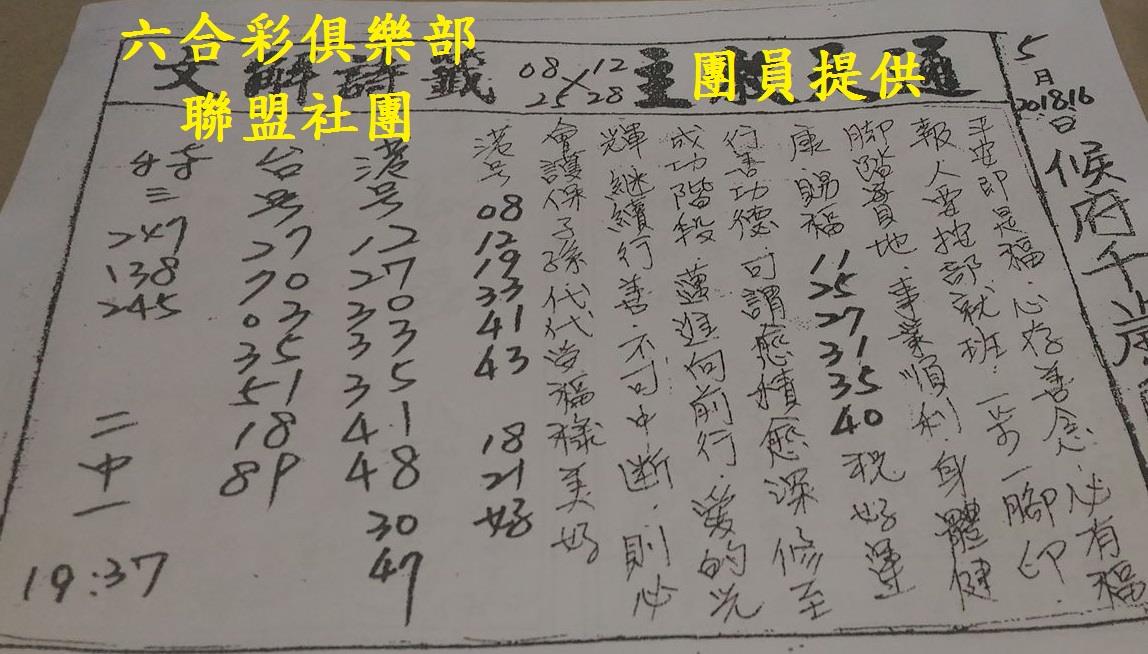 六合彩俱樂部
聯盟社團
團員提供
籤詩解文
08 12
25 28
5月16日
2018
候府千歲
平安即是福·心存善念·必有福
報人要按部就班·一步一腳印
腳踏實地·事業順利·身體健
康賜福 11 25 27 31 35 40 祝好運
行善功德·可謂愈積愈深修至
成功階段·邁進向前行·愛的光
輝繼續行善不可中断·則必
會護保子孫代代造福樣美好
港号 08 12 19 33 41 43 18 21 好
港号 12 27 30 33 35 41 48 30 47
台号 27 70 03 35 51 18 89
三 247 138 245 二中一
19:37